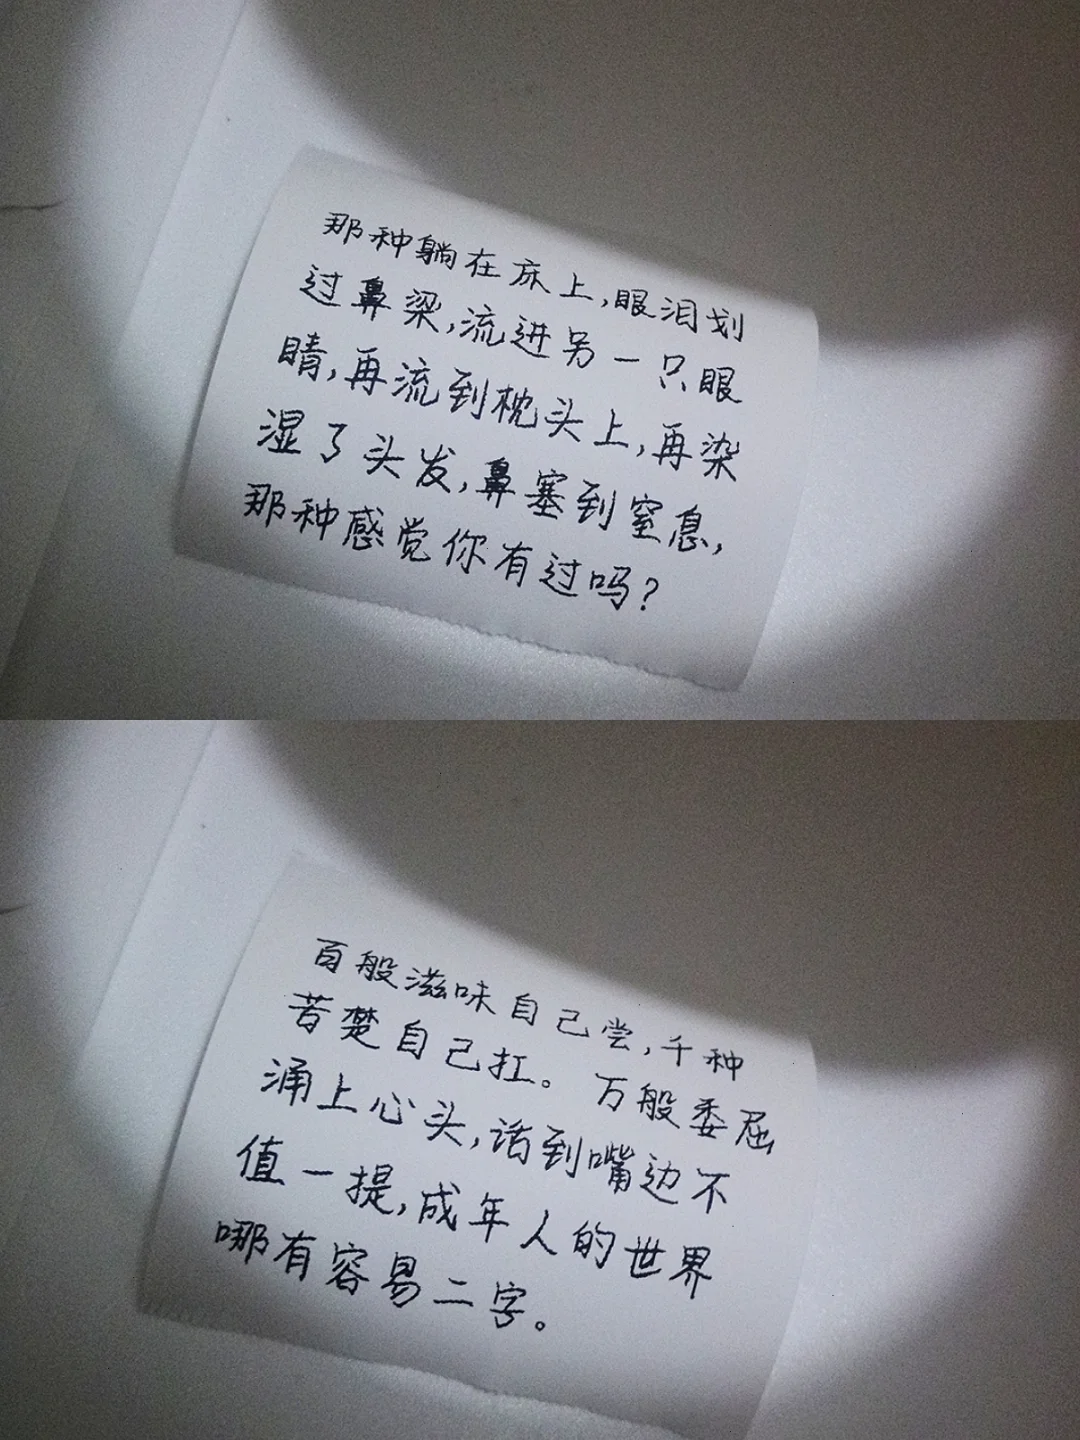 那种躺在床上,眼泪划
过鼻梁,流进另一只眼
睛,再流到枕头上,再染
湿了头发,鼻塞到窒息,
那种感觉你有过吗?
百般滋味自己尝,千种
苦楚自己扛。万般委屈
涌上心头,话到嘴边不
值一提,成年人的世界
哪有容易二字。